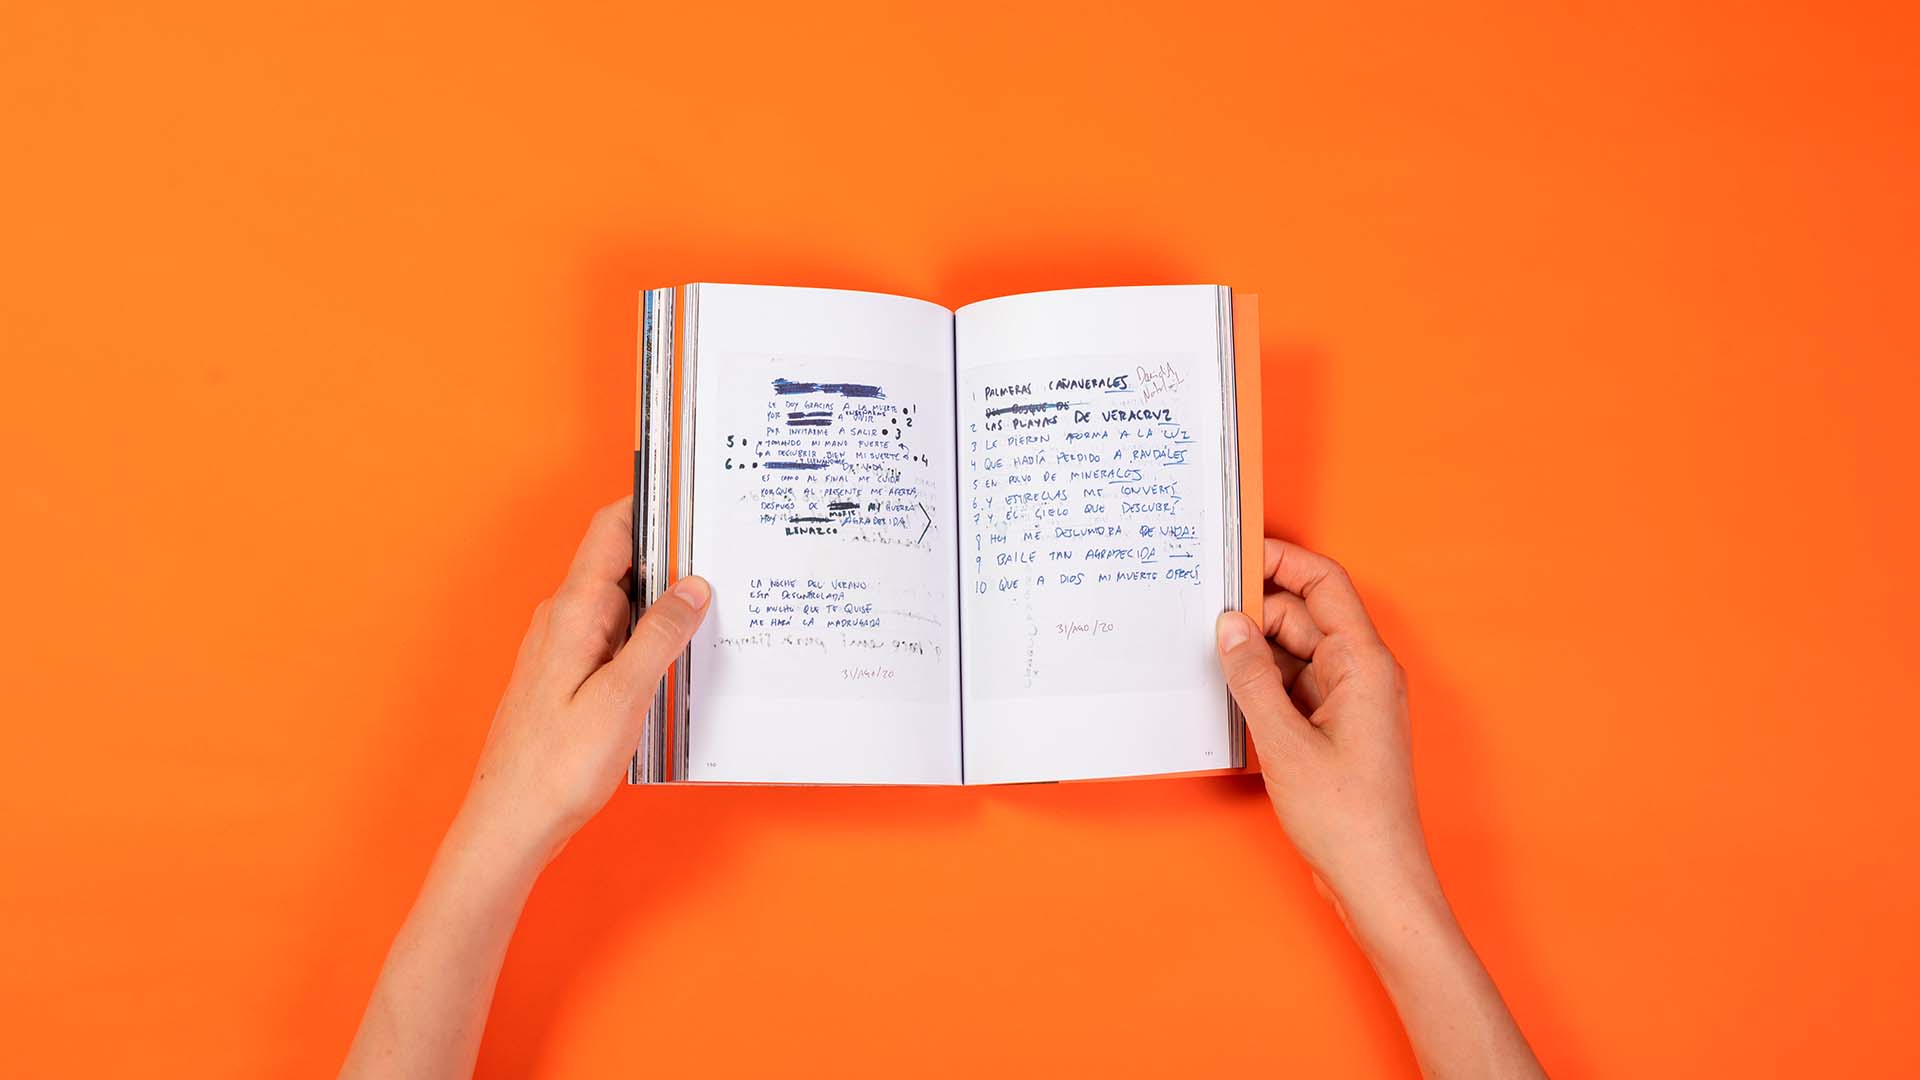 LE DOY GRACIAS A LA MUERTE • 1
POR A VIVIR • 2
POR INVITARME A SALIR • 3
5 • TOMANDO MI MANO FUERTE
A DESCUBRIR BIEN MI SUERTE • 4
6 • • DE VIDA
ES COMO AL FINAL ME CUIDA
PORQUE AL PRESENTE ME AFERRA
DESPUÉS DE MORIR MI GUERRA
HOY AGRADECIDA
RENAZCO
LA NOCHE DEL VERANO
ESTÁ DESCONTROLADA
LO MUCHO QUE TE QUISE
ME HARÁ LA MADRUGADA
31/AGO/20
150
1 PALMERAS CAÑAVERALES
DEL BOSQUE DE
2 LAS PLAYAS DE VERACRUZ
3 LE DIERON FORMA A LA LUZ
4 QUE HABÍA PERDIDO A RAUDALES
5 EN POLVO DE MINERALES
6 Y ESTRELLAS ME CONVERTÍ
7 Y EL CIELO QUE DESCUBRÍ
8 HOY ME DESLUMBRA DE VIDA:
9 BAILE TAN AGRADECIDA →
10 QUE A DIOS MI MUERTE OFRECÍ
31/AGO/20
151